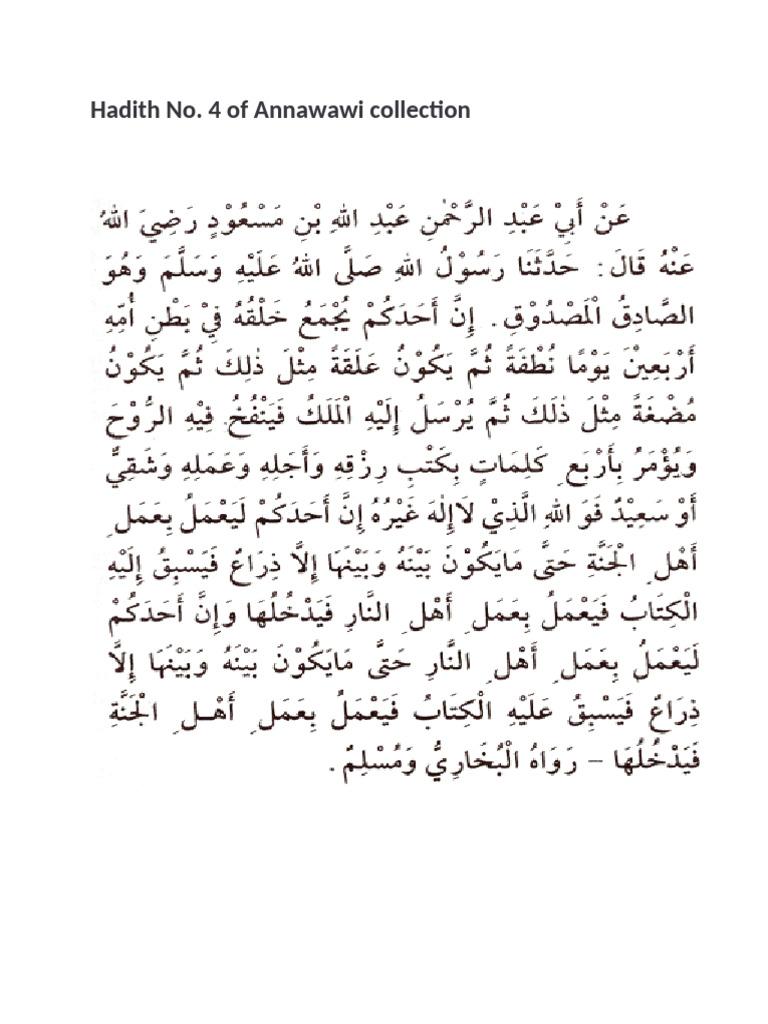 Hadith No. 4 of Annawawi collection
عَنْ أَبِيْ عَبْدِ الرَّحْمٰنِ عَبْدِ اللهِ بْنِ مَسْعُوْدٍ رَضِيَ اللهُ
عَنْهُ قَالَ: حَدَّثَنَا رَسُوْلُ اللهِ صَلَّى اللهُ عَلَيْهِ وَسَلَّمَ وَهُوَ
الصَّادِقُ الْمَصْدُوْقِ. إِنَّ أَحَدَكُمْ يُجْمَعُ خَلْقُهُ فِيْ بَطْنِ أُمِّهِ
أَرْبَعِيْنَ يَوْمًا نُطْفَةً ثُمَّ يَكُوْنُ عَلَقَةً مِثْلَ ذٰلِكَ ثُمَّ يَكُوْنُ
مُضْغَةً مِثْلَ ذٰلَكَ ثُمَّ يُرْسَلُ إِلَيْهِ الْمَلَكُ فَيَنْفُخُ فِيْهِ الرُّوْحَ
وَيُؤْمَرُ بِأَرْبَعِ كَلِمَاتٍ بِكَتْبِ رِزْقِهِ وَأَجَلِهِ وَعَمَلِهِ وَشَقِيٌّ
أَوْ سَعِيْدٌ فَوَ اللهِ الَّذِيْ لَاإِلٰهَ غَيْرُهُ إِنَّ أَحَدَكُمْ لَيَعْمَلُ بِعَمَلِ
أَهْلِ الْجَنَّةِ حَتَّى مَايَكُوْنَ بَيْنَهُ وَبَيْنَهَا إِلاَّ ذِرَاعٌ فَيَسْبِقُ إِلَيْهِ
الْكِتَابُ فَيَعْمَلُ بِعَمَلِ أَهْلِ النَّارِ فَيَدْخُلُهَا وَإِنَّ أَحَدَكُمْ
لَيَعْمَلُ بِعَمَلِ أَهْلِ النَّارِ حَتَّى مَايَكُوْنَ بَيْنَهُ وَبَيْنَهَا إِلاَّ
ذِرَاعٌ فَيَسْبِقُ عَلَيْهِ الْكِتَابُ فَيَعْمَلُ بِعَمَلِ أَهْلِ الْجَنَّةِ
فَيَدْخُلُهَا – رَوَاهُ الْبُخَارِيُّ وَمُسْلِمٌ.